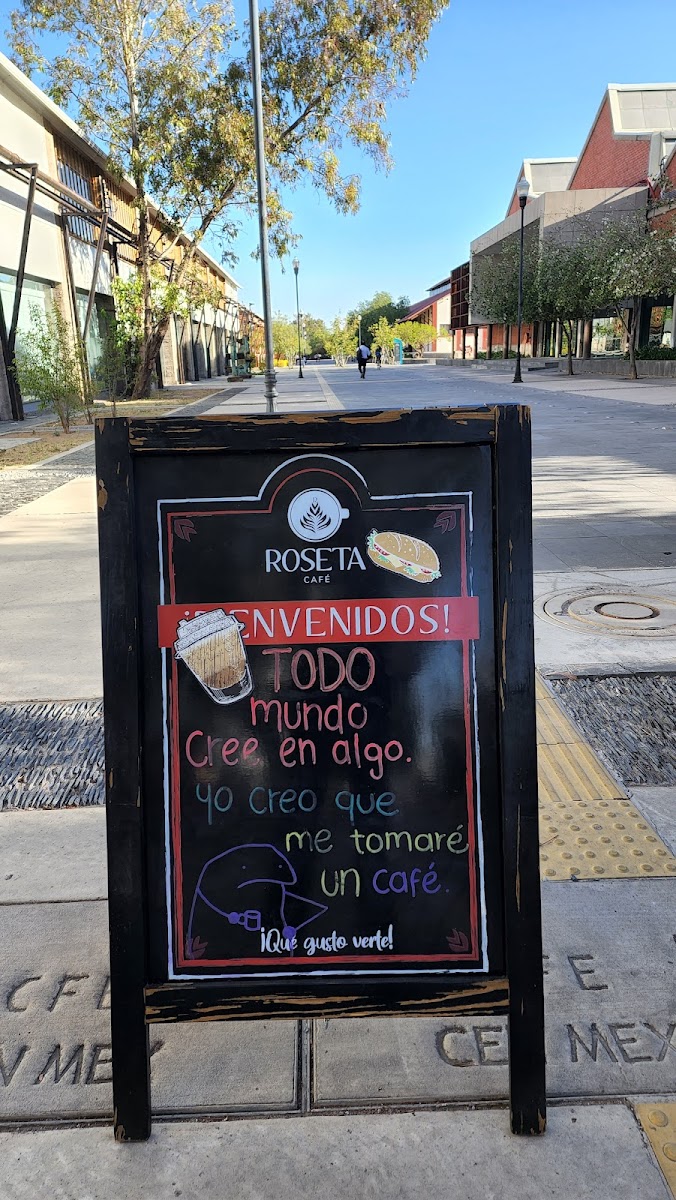 ROSETA
CAFÉ
¡BIENVENIDOS!
TODO
mundo
Cree en algo.
yo creo que
me tomaré
un café.
¡Qué gusto verte!
CFE
MEX